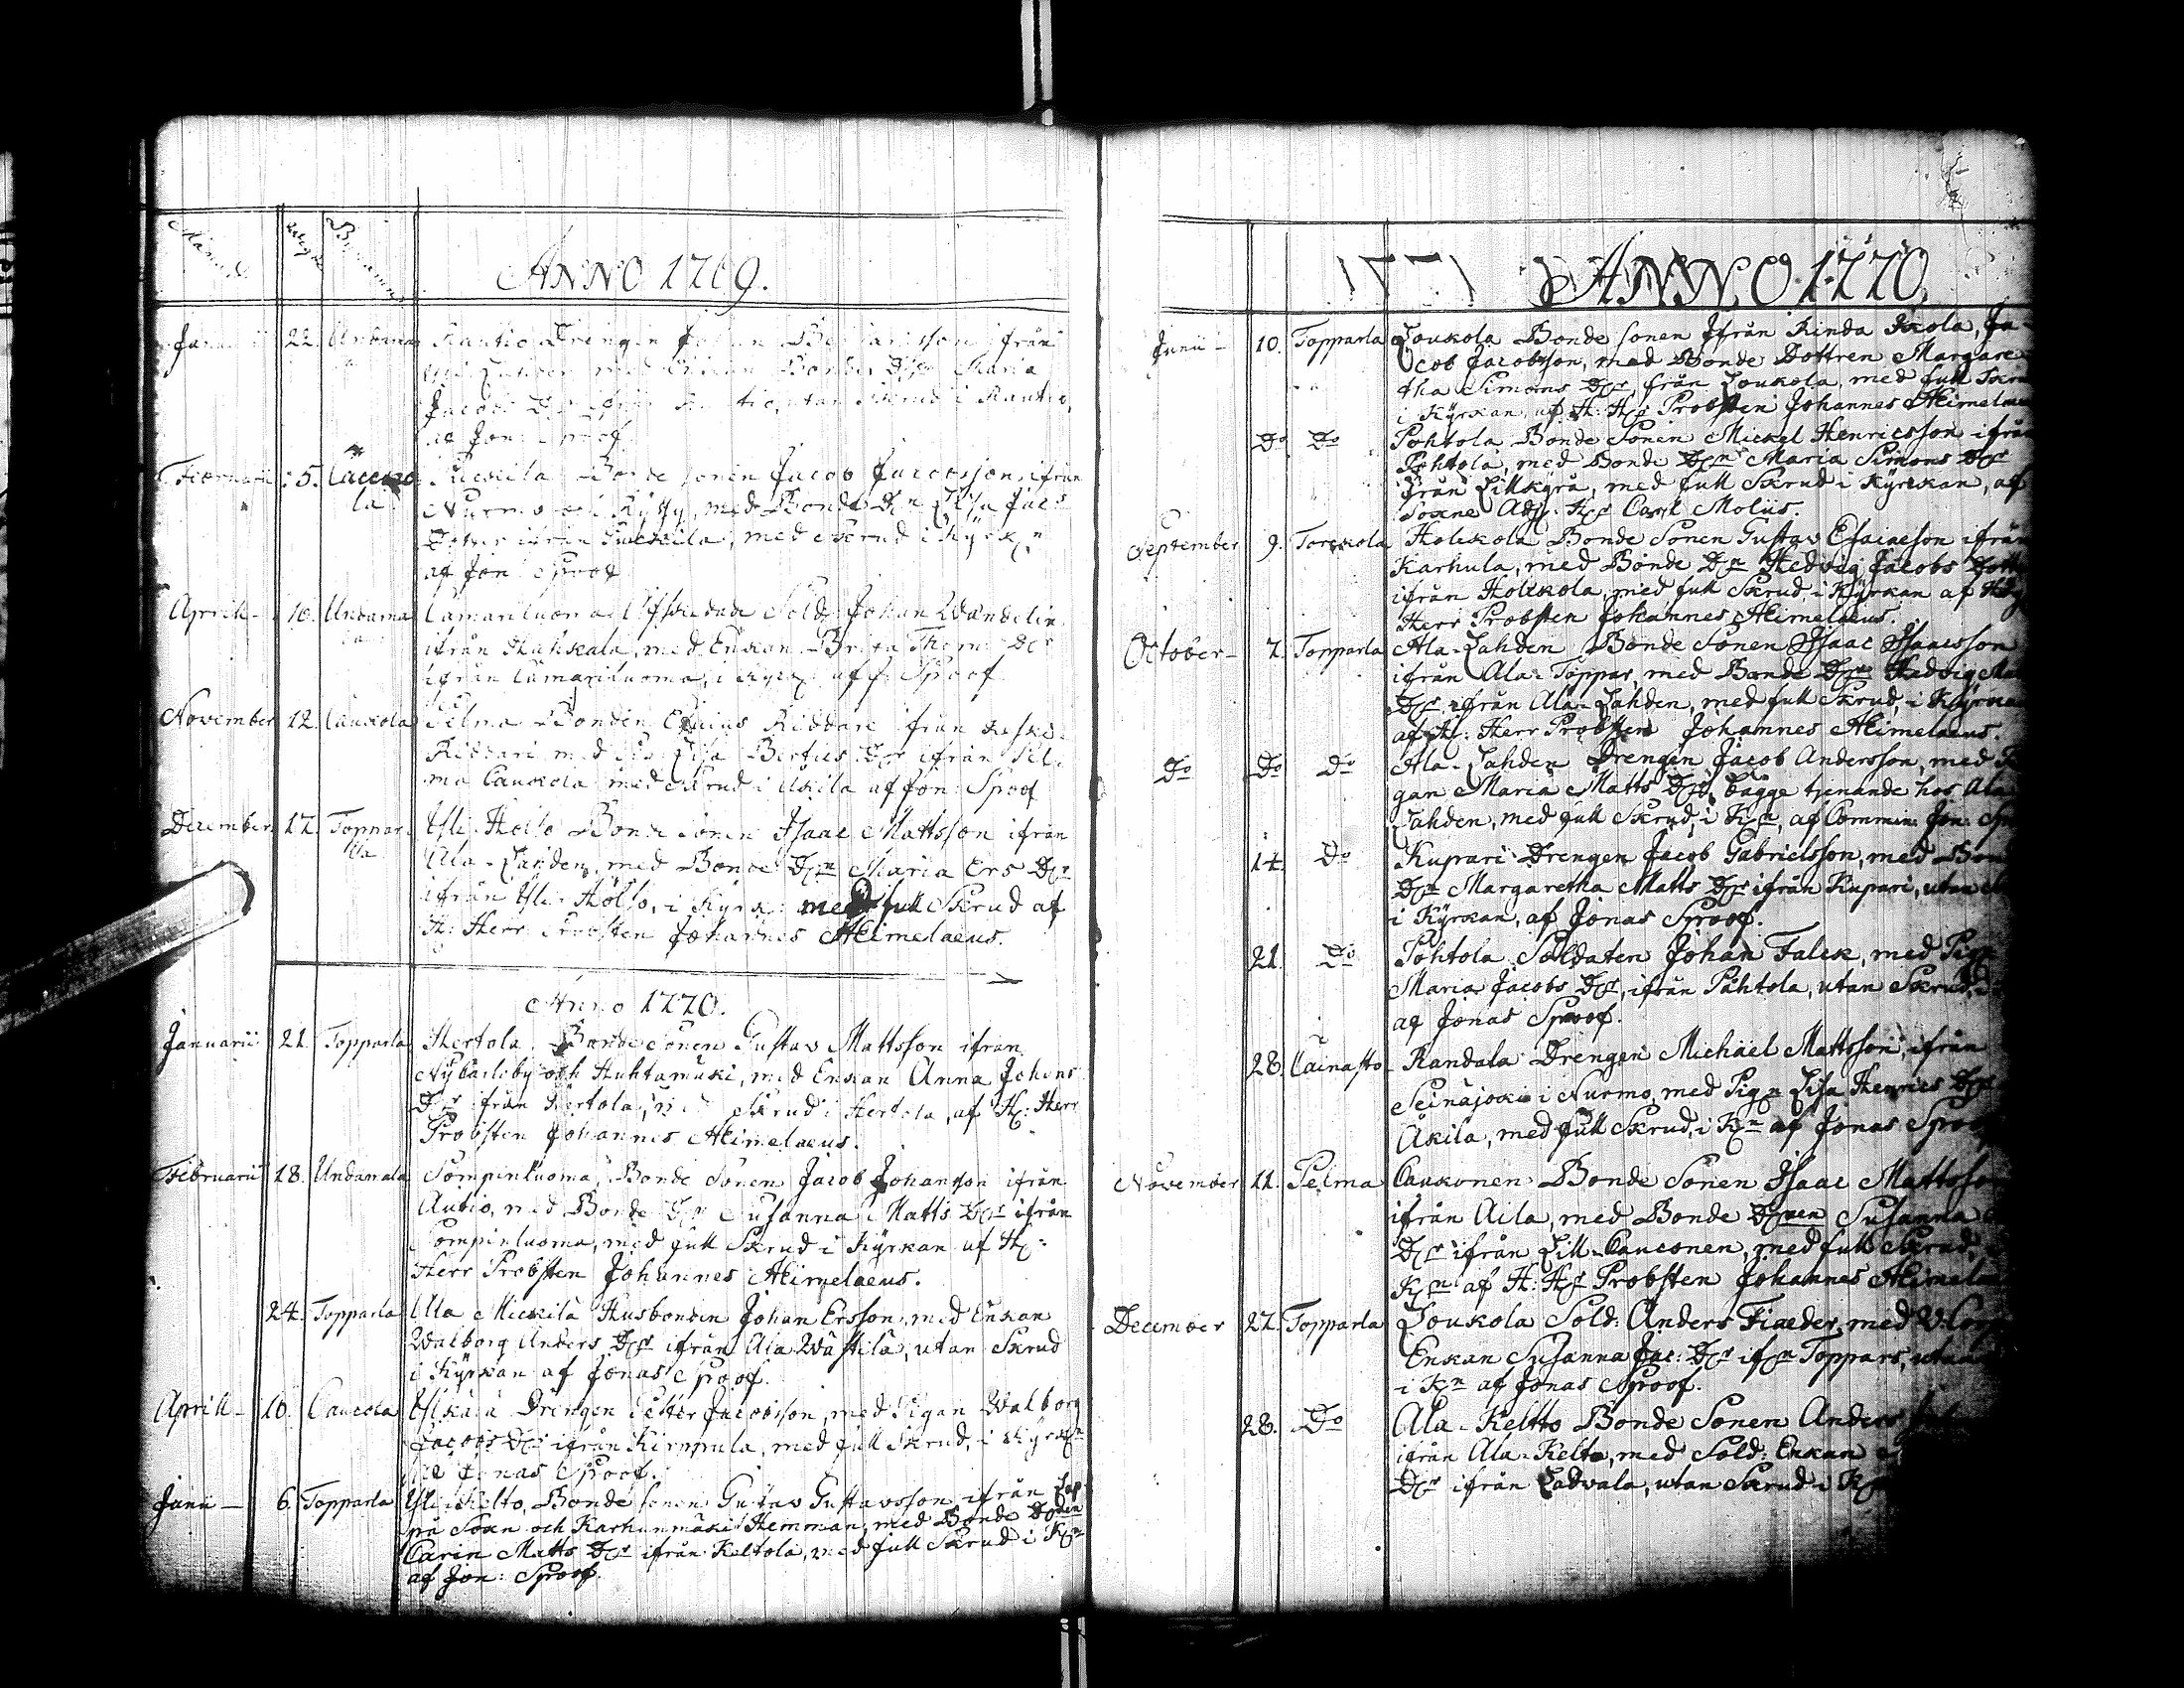 Månad Dagar Bynamn
ANNO 1769.
Januarii 22. Undama Rautio Drengen Johan ifrån
la
med Enkan Maria
Jacobs Dr ifrån Rautio, utan Skrud i Rautio,
af Jon: Sproof
Februarii 5. Caucko Bonde Sonen Jacob Jacobsson, ifrån
la Nurmo och Kyssy, med Bonde Dn Lisa Jacs
Dotter ifrån med Skrud i Kyrkn
af Jon: Sproof
Aprill 10. Undama Lamariluoma Afskedade Sold: Johan Wandelin
la ifrån Huhkala, med Enkan Brita Thom: Dr
ifrån Lamariluoma, i Kyrk: aff: Sproof
November 12. Cauckola Pelma Bonden Esaias Riddare ifrån Keski-
Riddari med Lisa Bertils Dr ifrån Pel-
ma Cauckola med Skrud i Ukila af Jon: Sproof
December 17. Toppar- Ysli Hollo Bonde Sonen Isaac Mattsson ifrån
la Ala-Lahden, med Bonde Drn Maria Ers Dr
ifrån Ysli Hollo, i Kyrk: med full Skrud af
H: Herr Probsten Johannes Aeimelaeus.
Anno 1770.
Januarii 21. Topparla Hertola Bonde Sonen Gustav Mattsson ifrån
Nybarloby och Huhtamäki, med Enkan Anna Johans
Dr ifrån Hertola, Skrud i Hertola, af H: Herr
Probsten Johannes Aeimelaeus.
Februarii 18. Undamala Sompinluoma, Bonde Sonen Jacob Johansson ifrån
Autio, med Bonde Drn Susanna Matts Dr ifrån
Sompinluoma, med full Skrud i Kyrkan af H:
Herr Probsten Johannes Aeimelaeus.
24. Topparla Ala Mickilä Husbonden Johan Ersson, med Enkan
Walborg Anders Dr ifrån Ala Wästilä, utan Skrud
i Kyrkan af Jonas Sproof.
Aprill 16. Caucola Drengen Petter Jacobsson, med Pigan Walborg
Jacobs Dr ifrån Kirppula, med full Skrud, i Kyrkn
af Jonas Sproof.
Junii 6. Topparla Ysli Kelto, Bonde Sonen Gustav Gustavsson ifrån Lap-
på Sokn och Karhunmäki Hemman, med Bonde Dren
Carin Matts Dr ifrån Keltola, med full Skrud i Kn
af Jon: Sproof.
ANNO 1770.
Junii 10. Topparla Loukola Bonde Sonen Ifrån Kinda Kola, Ja-
cob Jacobsson, med Bonde Dottren Margare-
tha Simons Dr från Loukola, med full Skru
i Kyrkan, af H: Hr Probsten Johannes Aeimelaeus
Do Do Pohtola Bonde Sonen Mickel Henricsson ifrån
Pohtola, med Bonde Drn Maria Simons Dr
ifrån Lillkyrå, med full Skrud i Kyrckan, af
Sokne Adj. Hr Carl Molüs.
September 9. Torckola Holckola Bonde Sonen Gustav Esaiaeson ifrån
Karhula, med Bonde Drn Hedvig Jacobs Dott
ifrån Holckola, med full Skrud, i Kyrkan af
Herr Probsten Johannes Aeimelaeus.
October 7. Topparla Ala-Lahden Bonde Sonen Isaac Isaacsson
ifrån Ala-Toppar, med Bonde Drn Hedvig Ma
Dr ifrån Ala-Lahden, med full Skrud, i Kyrka
af H: Herr Probsten Johannes Aeimelaeus.
Do Do Do Ala-Lahden Drengen Jacob Andersson, med P
gan Maria Matts Dr, bägge tjenande hos Ala
Lahden, med full Skrud, i Kn, af Commin: Jon: Sp
14. Do Kupari Drengen Jacob Gabrielsson, med Bon
Drn Margaretha Matts Dr ifrån Kupari, utan
i Kyrkan, af Jonas Sproof.
21. Do Pohtola Soldaten Johan Falck, med Pig
Maria Jacobs Dr, ifrån Påhtola, utan Skrud,
af Jonas Sproof.
28. Cainasto Randala Drengen Michäel Mattsson, ifrån
Seinäjocki i Nurmo, med Pign Lisa Henrics Dr
Äkila, med full Skrud, i Kn af Jonas Sproof
November 11. Pelma Cauconen Bonde Sonen Isaac Mattsso
ifrån Aila, med Bonde Dren Susanna
Dr ifrån Lill-Cauconen, med full Skrud,
Kn af H: Hr Probsten Johannes Aeimelaeus
December 27. Topparla Loukola Sold: Anders Fiaeder, med V: Corp
Enkan Susanna Jac: Dr ifn Toppars, utan
i Kn af Jonas Sproof.
28. Do Ala-Keltto Bonde Sonen Anders
ifrån Ala-Kelto, med Sold: Enkan
Dr ifrån Ladvala, utan Skrud i Kn